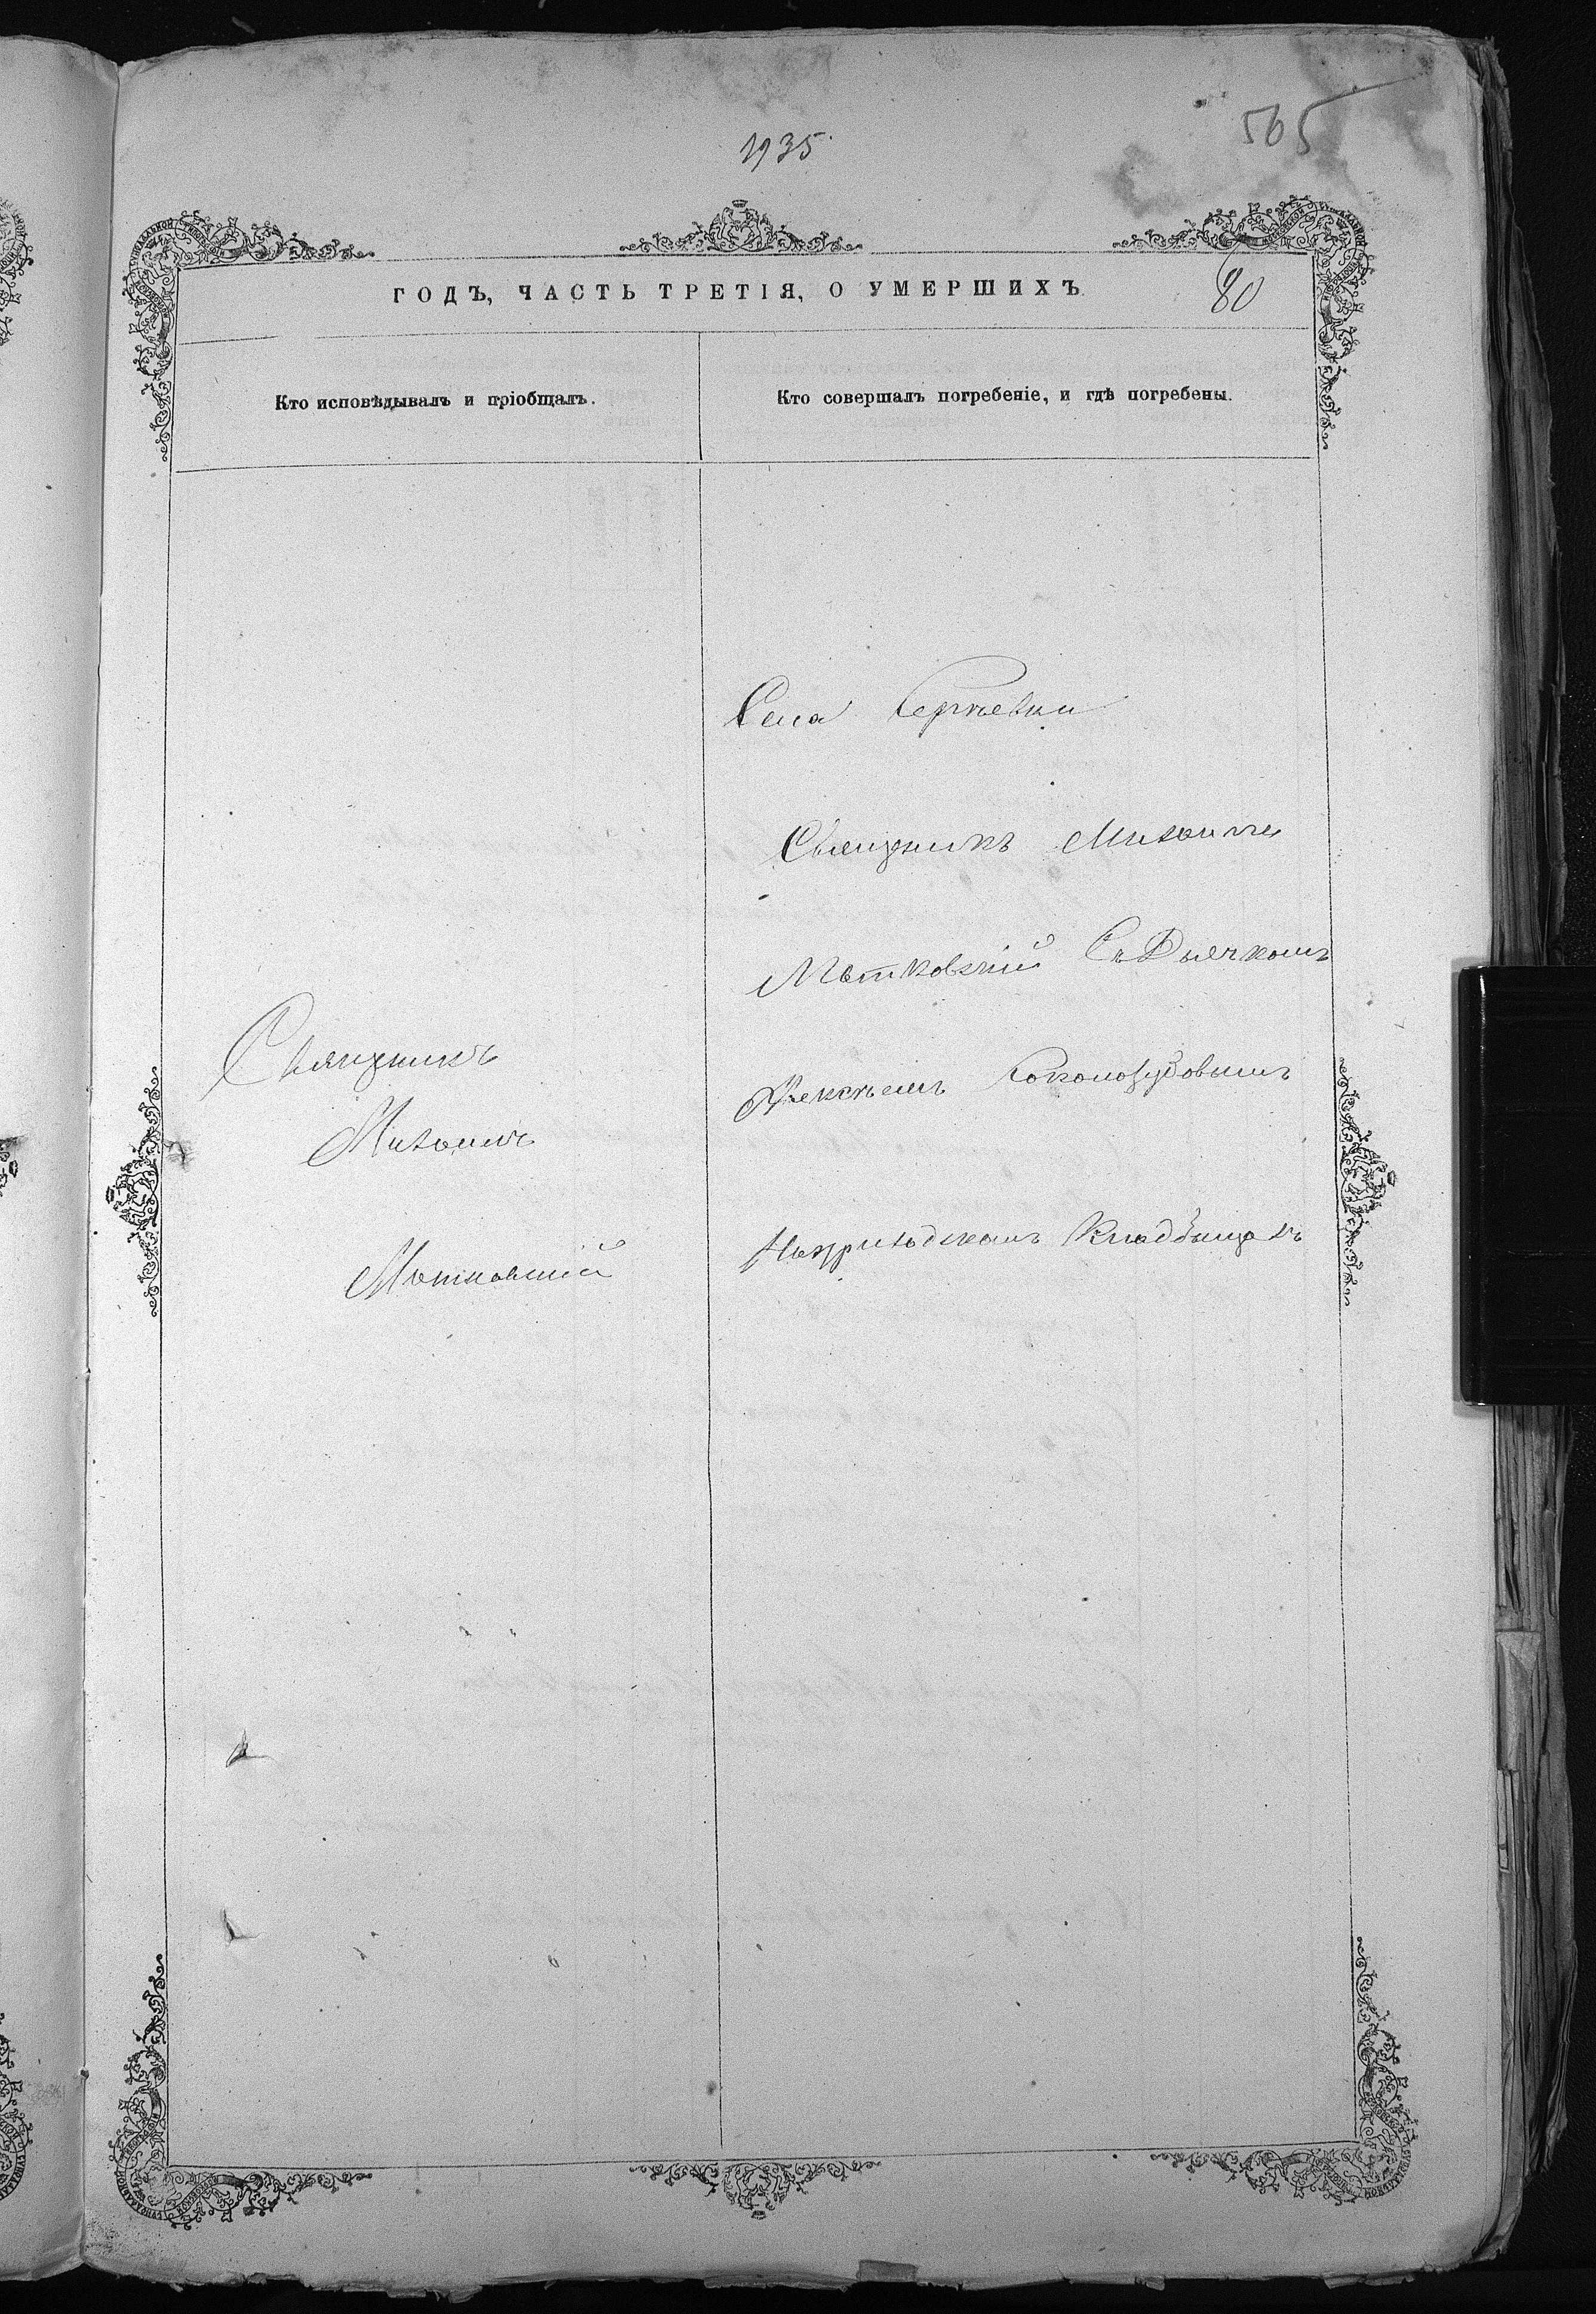 1935
565
ГОДЪ, ЧАСТЬ ТРЕТІЯ, О УМЕРШИХЪ
80
Кто исповѣдывалъ и пріобщалъ.
Кто совершалъ погребеніе, и гдѣ погребены.
Села Сергѣевки
Священникъ Михаилъ
Мѣтковскій Съ Дьячкомъ
Алексѣемъ
На приходскомъ Кладбищѣ
Священникъ
Михаилъ
Мѣтковскій